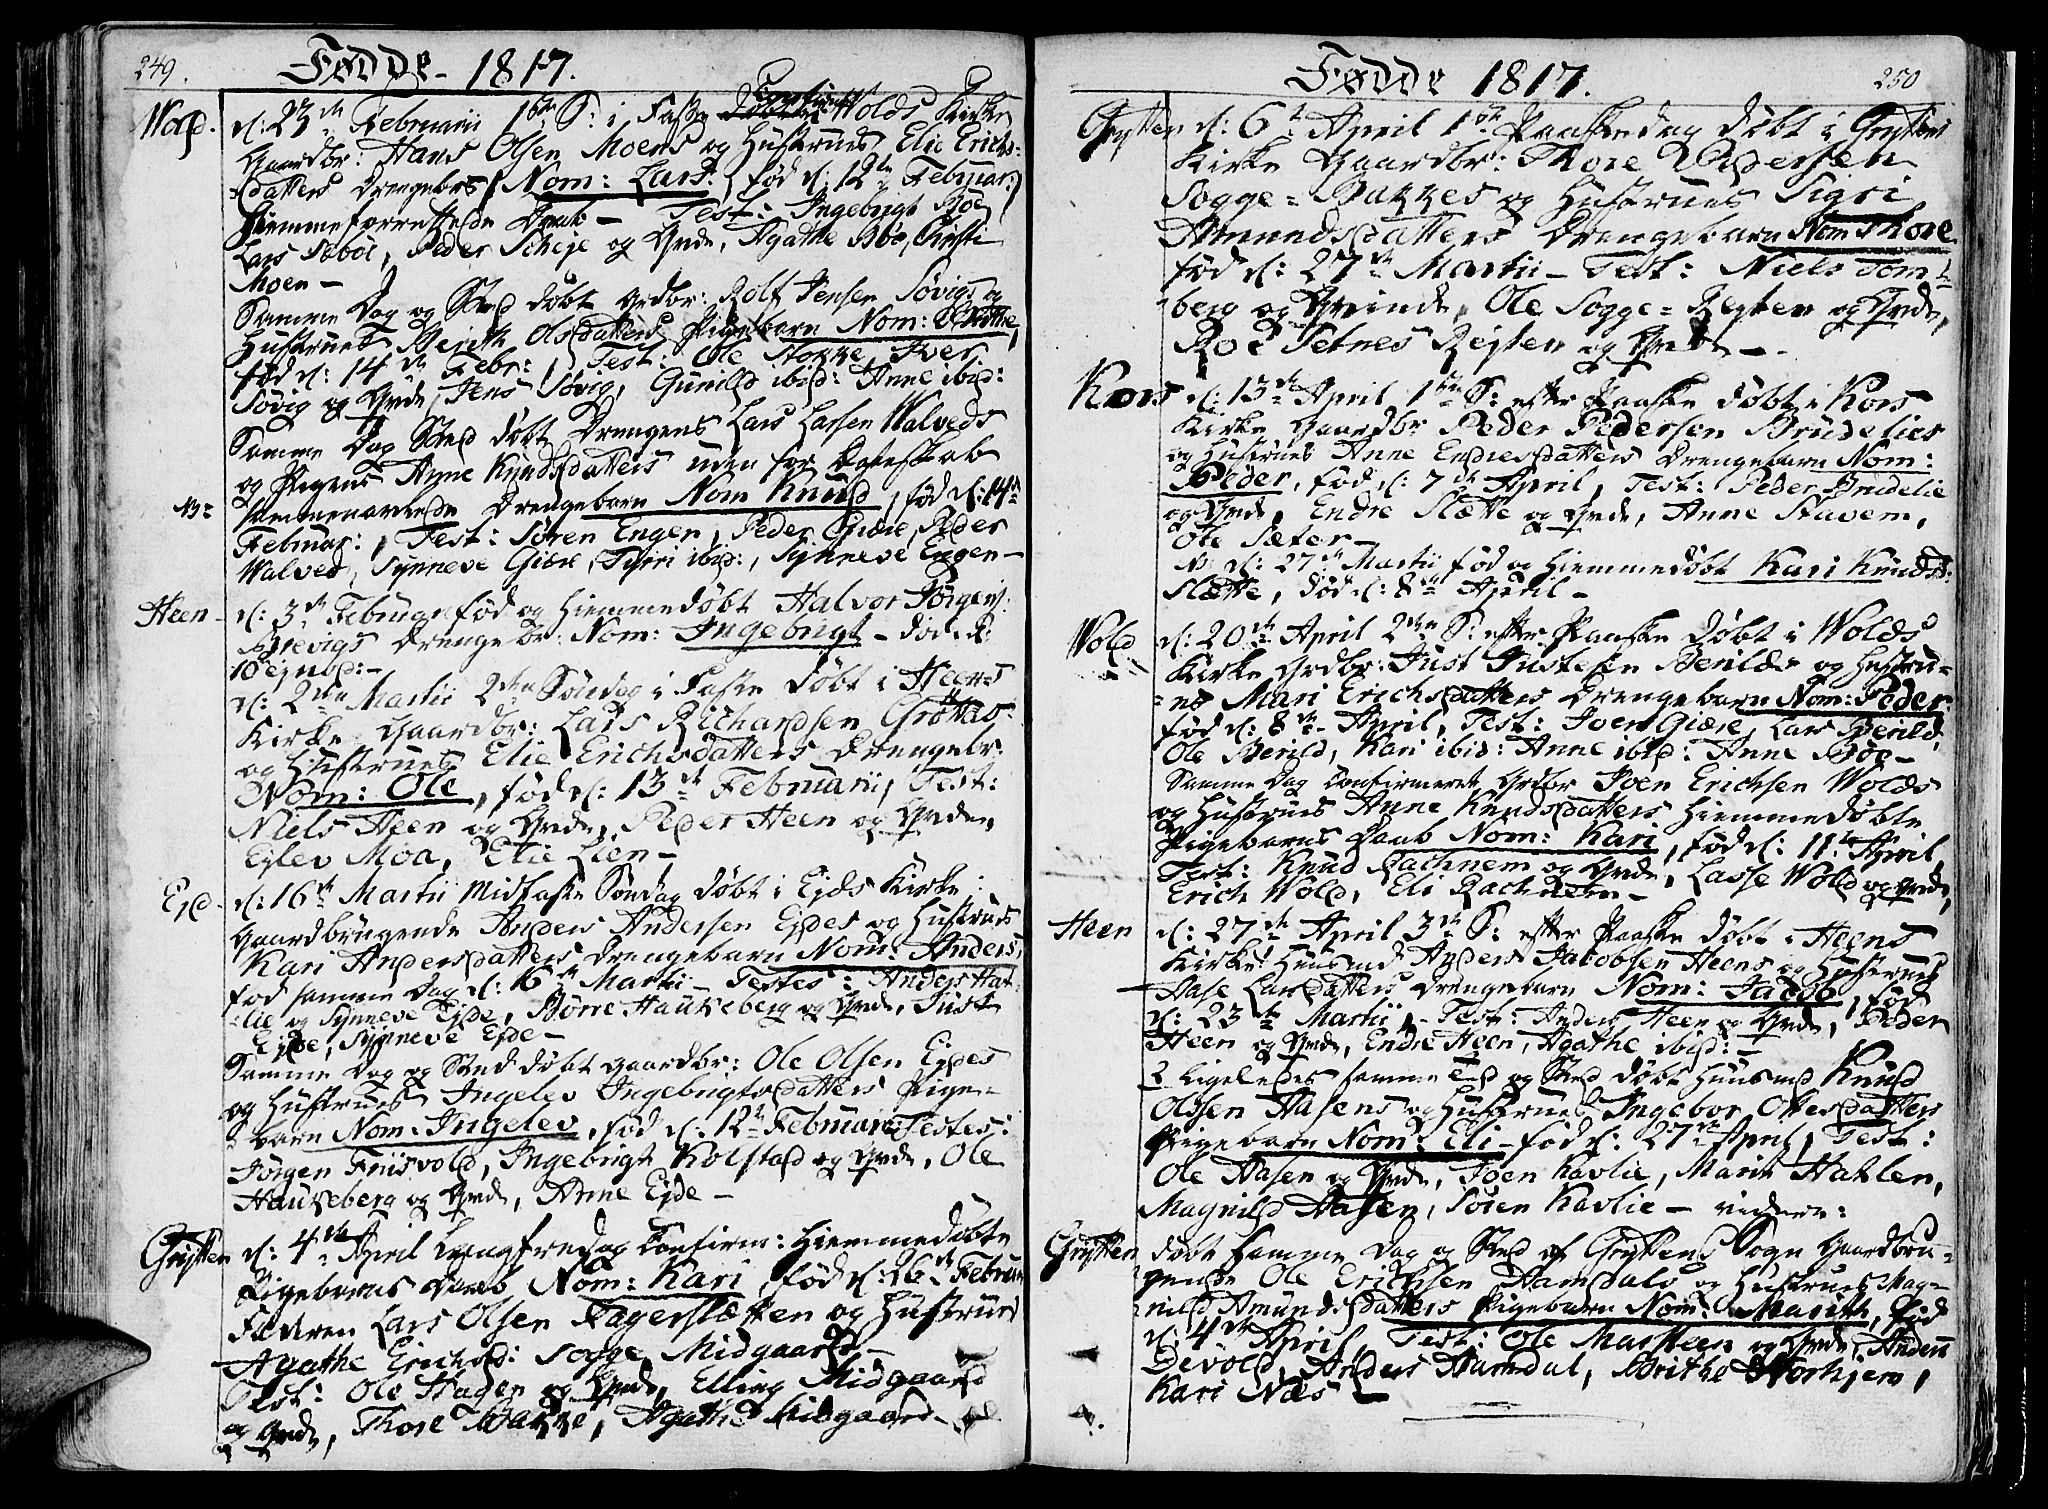 249.
Fødde 1817.
Wold. d: 23de Februarii 1ste S: i Faste Confirm: Wolds Kirke
Gaardbr: Hans Olsen Moens og Hustrues Elie Erichs-
datters Drengebs Nom: Lars, fød d: 12te Februar:
Hiemmeforrettede Daab – Test: Ingebrigt Boe
Lars Sæboe, Peder Scheje og Qvde, Agathe Boe, Kirsti
Moen –
Samme Dag og Sted døbt Grdbr: Rolf Jensen Søvigs og
Hustrues Berith Olsdatters Pigebarn Nom:
fød d: 14de Febr:, Test: Ole Stokke, Iver
Søvig og Qvde, Jens Søvig, Gunild ibid: Anne ibid:
Samme Dag Sted døbt Drengens Lars Larsen Walveds
og Pigens Anne Knudsdatters uden for Ægteskab
NB: sammenavlede Drengebarn Nom Knud, fød d: 14de
Februar:, Test: Søren Engen, Peder Giære, Peder
Walved, Synneve Giære, Siri ibid:, Synneve Engen –
Heen – d: 3de Februar fød og Hiemmedøbt Halvor Jørgens:
Brevigs Drengebr: Nom: Ingebrigt – død d:
10 ejusd: –
d: 2den Martii 2den Søndag i Faste døbt i Heens
Kirke Gaardbr: Lars Richardsen Grøttas
og Hustrues Elie Erichsdatters Drengebr:
Nom: Ole, fød d: 13de Februarii, Test:
Niels Heen og Qvde, Peder Heen og Qvden,
Ejlev Moa, Elie Lien –
Ejd – d: 16de Martii Midfaste Søndag døbt i Ejds Kirke
Gaardbrugende Anders Andersen Ejdes og Hustrues
Kari Andersdatters Drengebarn Nom: Anders,
fød samme Dag d: 16de Martii – Testes: Anders Hat-
lie og Synneve Ejde, Børre Haukeberg og Qvde, Just
Ejde, Synneve Ejde –
Samme Dag og Sted døbt Gaardbr: Ole Olsen Ejdes
og Hustrues Ingelev Ingebrigtsdatters Pige-
barn Nom: Ingelev, fød d: 12te Februarii Testes:
Jørgen Friisvold, Ingebrigt Kolstad og Qvde, Ole
Haukeberg og Qvde, Anne Ejde –
Grytten d: 4de April Langfredag Confirm: Hiemmedøbte
Pigebarns Daab Nom: Kari, fød d: 26de Februar
Faderen Lars Olsen Fagerslætten og Hustrue
Agathe Erichsd: Sogge Midgaard –
Test: Ole Hagen og Qvde, Elling Midgaard
og Qvde, Thore Bakke, Agathe Midgaard –
250
Fødde 1817.
Grytten d: 6te April 1ste Paaskedag døbt i Gryttens
Kirke Gaardbr: Thore Pedersen
Sogge-Bakkes og Hustrues Sigri
Amundsdatters Drengebarn Nom Thore
fød d: 27de Martii – Test: Niels Tom-
berg og Qvinde, Ole Sogge-Rejten og Qvde,
Roe Setnes Rejten og Qvde –
Kors d: 13de April 1ste S: efter Paaske døbt i Kors
Kirke Gaardbr Peder Pedersen Brudelies
og Hustrues Anne Endresdatters Drengebarn Nom:
Peder, fød d: 7de April, Test: Peder Brudelie
og Qvde, Endre Slætte og Qvde, Anne Stavem,
Ole Sæter –
N d: 27de Martii fød og Hiemmedøbt Kari Knudsd:
Slætte, død d: 8de April –
Wold d: 20de April 2den S: efter Paaske døbt i Wolds
Kirke Grdbr: Just Justesen Berilds og Hustru-
es Mari Erichsdatters Drengebarn Nom: Peder
fød d: 8de April, Test: Joen Giære, Lars Berild,
Ole Berild, Kari ibid: Anne ibid: Anne Boe –
Samme Dag Confirmeret Grdbr Joen Erichsen Wolds
og Hustrues Anne Knudsdatters Hiemmedøbte
Pigebarns Daab Nom: Kari, fød d: 11te April
Test: Knud Rachnem og Qvde, Lasse Wold og Qvde,
Erich Wold, Eli Rachnem –
Heen d: 27de April 3de S: efter Paaske døbt i Heens
Kirke Huusmd Anders Jacobsen Heens og Hustrues
Aase Larsdatters Drengebarn Nom: Jacob, fød
d: 23de Martii – Test: Anders Heen og Qvde, Peder
Heen og Qvde, Endre Heen, Agathe ibid: –
2 Ligeledes samme Tid og Sted døbt Huusmd Knud
Olsen Aasens og Hustrues Ingebor Olsdatters
Pigebarn Nom: Eli – fød d: 27de April, Test:
Ole Aasen og Qvde, Joen Kavlie, Marit Hatlen,
Magnild Aasen, Søren Kavlie – videre:
Grytten døbt samme Dag og Sted af Gryttens Sogn Gaardbru-
gende Ole Erichsen Hamdals og Hustrues Mag-
nild Amundsdatters Pigebarn Nom: Marith, fød
d: 4de April, Test: Ole Marsteen og Qvde, Anders
Devold, Anders Hamdal, Brithe Horhjem,
Kari Næs –